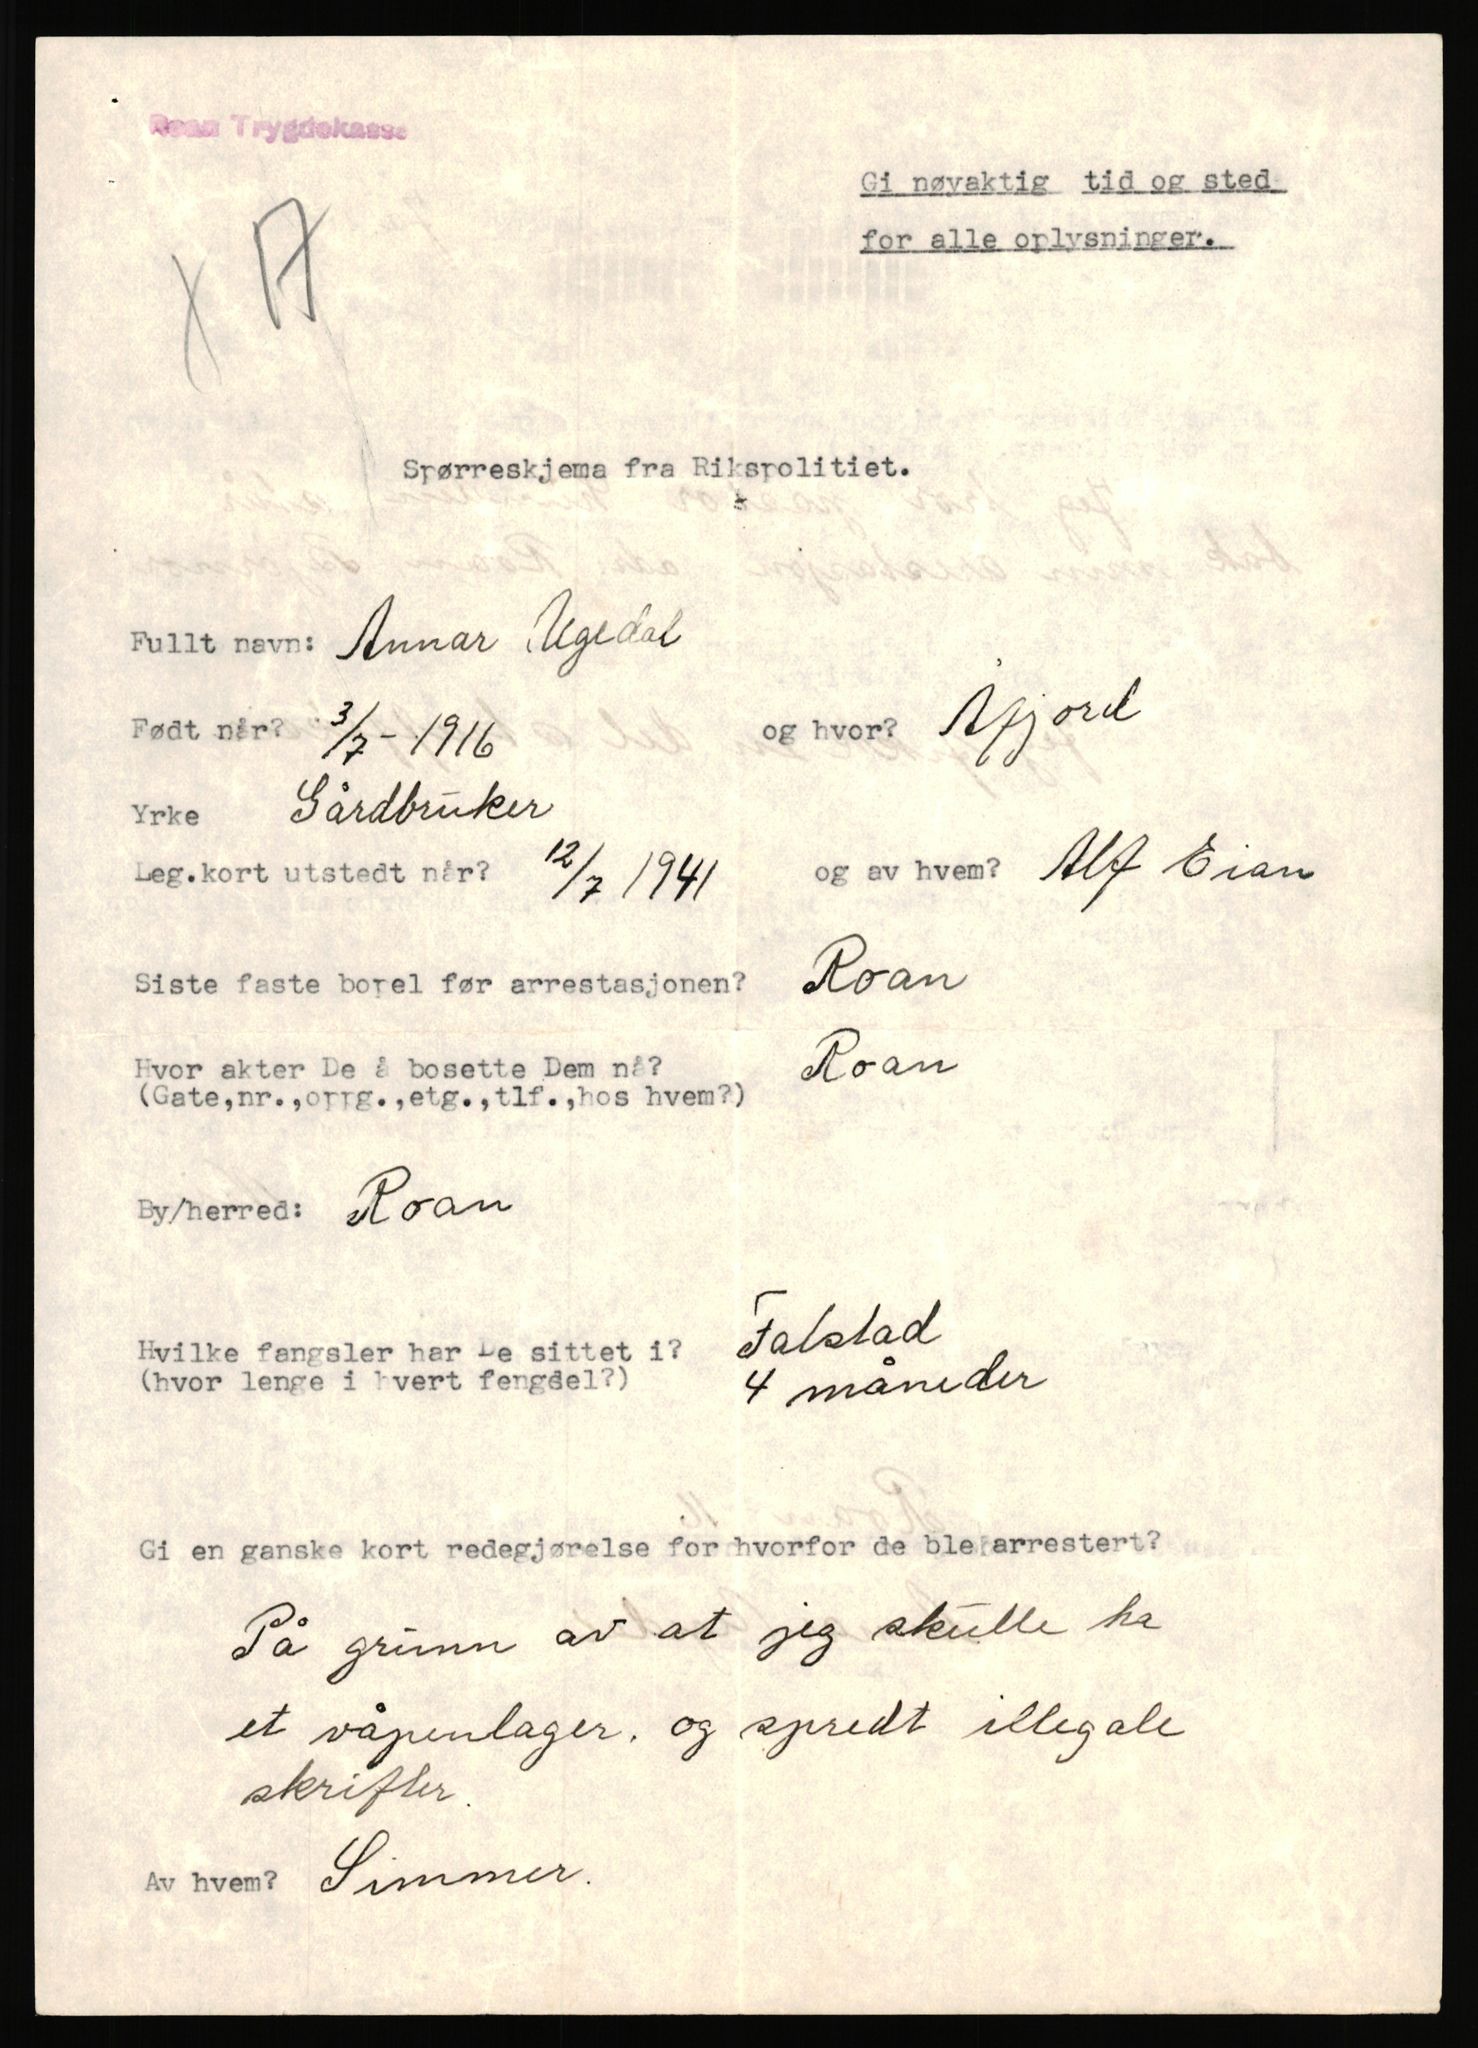 Roan Trygdekasse
Gi nøyaktig tid og sted
for alle oplysninger.
A
Spørreskjema fra Rikspolitiet.
Fullt navn: Annar Ugedal
Født når? 3/7-1916 og hvor? Åfjord
Yrke Gårdbruker
Leg.kort utstedt når? 12/7 1941 og av hvem? Alf Eian
Siste faste bopel før arrestasjonen? Roan
Hvor akter De å bosette Dem nå? Roan
(Gate,nr.,oppg.,etg.,tlf.,hos hvem?)
By/herred: Roan
Hvilke fangsler har De sittet i? Falstad
(hvor lenge i hvert fengdel?) 4 måneder
Gi en ganske kort redegjørelse for hvorfor de ble arrestert?
På grunn av at jeg skulle ha
et våpenlager. og spredt illegale
skrifter.
Av hvem? Simmer.